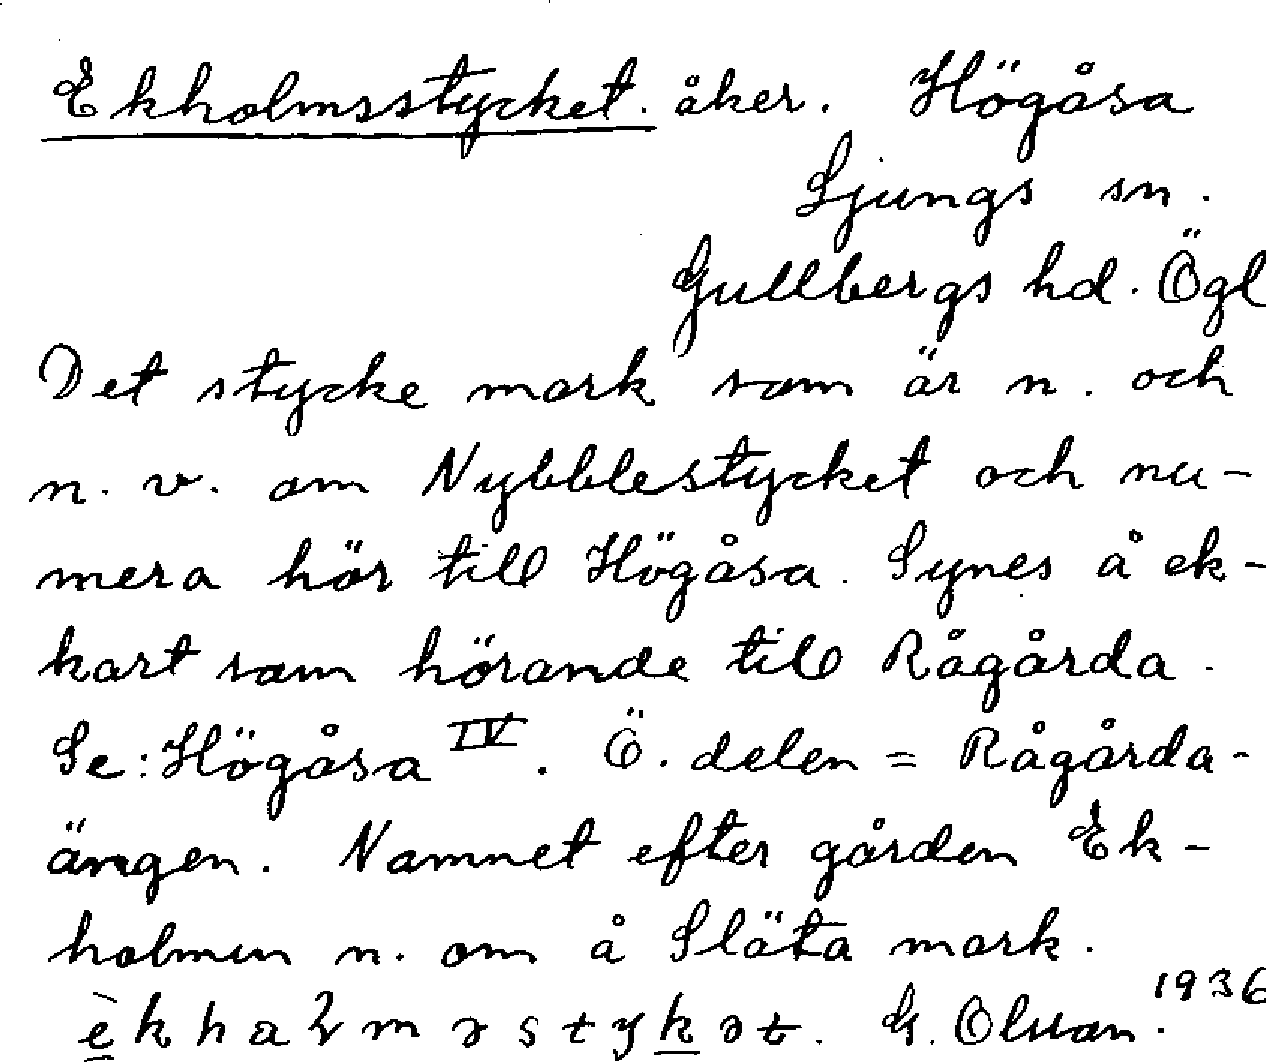 Ekholmsstycket. åker. Högåsa
Ljungs sn.
Gullbergs hd. Ögl
Det stycke mark som är n. och
n. v. om Nybblestycket och nu-
mera hör till Högåsa. Synes å ek-
kart som hörande till Rågårda.
Se: Högåsa IV. Ö. delen = Rågårda-
ängen. Namnet efter gården Ek-
holmen n. om å Släta mark.
1936
èkhaɽməstykət. G. Olsson.